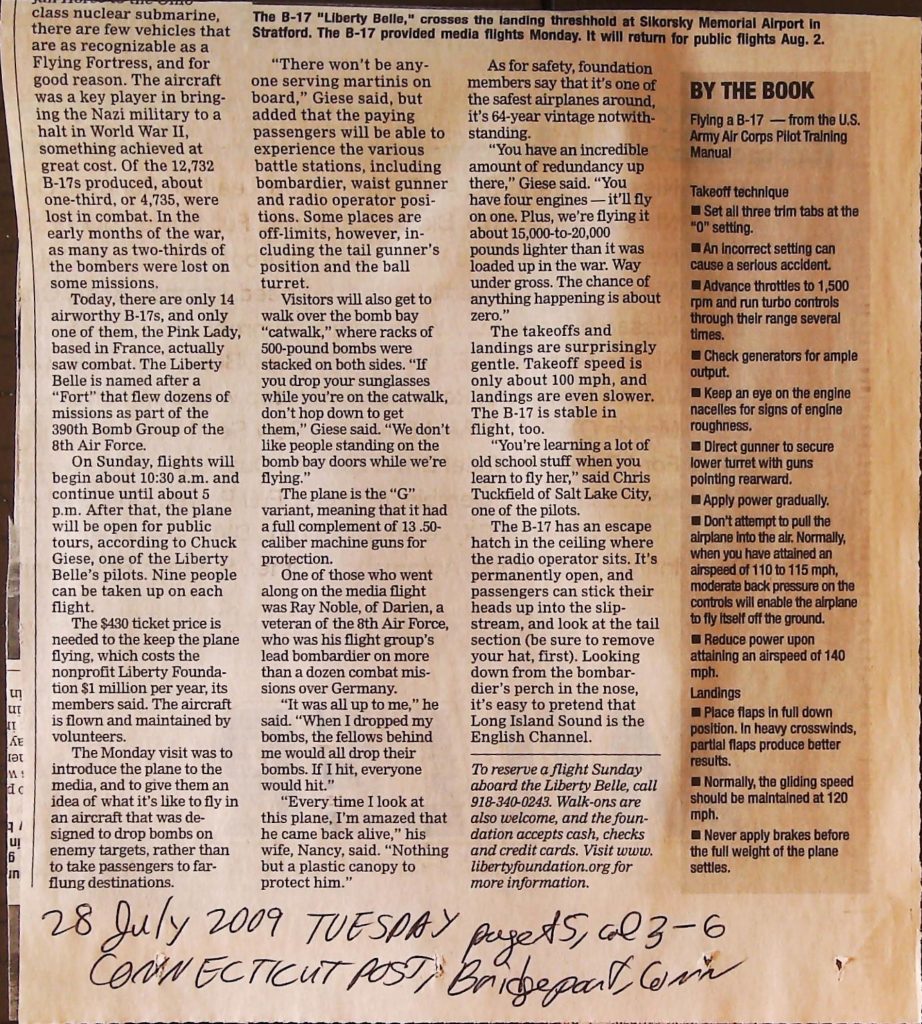 class nuclear submarine,
there are few vehicles that
are as recognizable as a
Flying Fortress, and for
good reason. The aircraft
was a key player in bring-
ing the Nazi military to a
halt in World War II,
something achieved at
great cost. Of the 12,732
B-17s produced, about
one-third, or 4,735, were
lost in combat. In the
early months of the war,
as many as two-thirds of
the bombers were lost on
some missions.
Today, there are only 14
airworthy B-17s, and only
one of them, the Pink Lady,
based in France, actually
saw combat. The Liberty
Belle is named after a
"Fort" that flew dozens of
missions as part of the
390th Bomb Group of the
8th Air Force.
On Sunday, flights will
begin about 10:30 a.m. and
continue until about 5
p.m. After that, the plane
will be open for public
tours, according to Chuck
Giese, one of the Liberty
Belle's pilots. Nine people
can be taken up on each
flight.
The $430 ticket price is
needed to the keep the plane
flying, which costs the
nonprofit Liberty Founda-
tion $1 million per year, its
members said. The aircraft
is flown and maintained by
volunteers.
The Monday visit was to
introduce the plane to the
media, and to give them an
idea of what it's like to fly in
an aircraft that was de-
signed to drop bombs on
enemy targets, rather than
to take passengers to far-
flung destinations.
The B-17 "Liberty Belle," crosses the landing threshhold at Sikorsky Memorial Airport in
Stratford. The B-17 provided media flights Monday. It will return for public flights Aug. 2.
"There won't be any-
one serving martinis on
board," Giese said, but
added that the paying
passengers will be able to
experience the various
battle stations, including
bombardier, waist gunner
and radio operator posi-
tions. Some places are
off-limits, however, in-
cluding the tail gunner's
position and the ball
turret.
Visitors will also get to
walk over the bomb bay
"catwalk," where racks of
500-pound bombs were
stacked on both sides. "If
you drop your sunglasses
while you're on the catwalk,
don't hop down to get
them," Giese said. "We don't
like people standing on the
bomb bay doors while we're
flying."
The plane is the "G"
variant, meaning that it had
a full complement of 13 .50-
caliber machine guns for
protection.
One of those who went
along on the media flight
was Ray Noble, of Darien, a
veteran of the 8th Air Force,
who was his flight group's
lead bombardier on more
than a dozen combat mis-
sions over Germany.
"It was all up to me," he
said. "When I dropped my
bombs, the fellows behind
me would all drop their
bombs. If I hit, everyone
would hit."
"Every time I look at
this plane, I'm amazed that
he came back alive," his
wife, Nancy, said. "Nothing
but a plastic canopy to
protect him."
As for safety, foundation
members say that it's one of
the safest airplanes around,
it's 64-year vintage notwith-
standing.
"You have an incredible
amount of redundancy up
there," Giese said. "You
have four engines — it'll fly
on one. Plus, we're flying it
about 15,000-to-20,000
pounds lighter than it was
loaded up in the war. Way
under gross. The chance of
anything happening is about
zero."
The takeoffs and
landings are surprisingly
gentle. Takeoff speed is
only about 100 mph, and
landings are even slower.
The B-17 is stable in
flight, too.
"You're learning a lot of
old school stuff when you
learn to fly her," said Chris
Tuckfield of Salt Lake City,
one of the pilots.
The B-17 has an escape
hatch in the ceiling where
the radio operator sits. It's
permanently open, and
passengers can stick their
heads up into the slip-
stream, and look at the tail
section (be sure to remove
your hat, first). Looking
down from the bombar-
dier's perch in the nose,
it's easy to pretend that
Long Island Sound is the
English Channel.
To reserve a flight Sunday
aboard the Liberty Belle, call
918-340-0243. Walk-ons are
also welcome, and the foun-
dation accepts cash, checks
and credit cards. Visit www.
libertyfoundation.org for
more information.
BY THE BOOK
Flying a B-17 — from the U.S.
Army Air Corps Pilot Training
Manual
Takeoff technique
■ Set all three trim tabs at the
"0" setting.
■ An incorrect setting can
cause a serious accident.
■ Advance throttles to 1,500
rpm and run turbo controls
through their range several
times.
■ Check generators for ample
output.
■ Keep an eye on the engine
nacelles for signs of engine
roughness.
■ Direct gunner to secure
lower turret with guns
pointing rearward.
■ Apply power gradually.
■ Don't attempt to pull the
airplane into the air. Normally,
when you have attained an
airspeed of 110 to 115 mph,
moderate back pressure on the
controls will enable the airplane
to fly itself off the ground.
■ Reduce power upon
attaining an airspeed of 140
mph.
Landings
■ Place flaps in full down
position. In heavy crosswinds,
partial flaps produce better
results.
■ Normally, the gliding speed
should be maintained at 120
mph.
■ Never apply brakes before
the full weight of the plane
settles.
28 July 2009 TUESDAY page A5, col 3-6
CONNECTICUT POST, Bridgeport, Conn